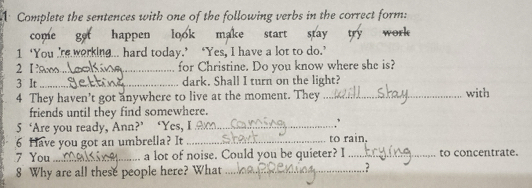 1 Complete the sentences with one of the following verbs in the correct form:
come get happen look make start stay try work
1 'You 're working... hard today.' 'Yes, I have a lot to do.'
2 I 'am...looking............ for Christine. Do you know where she is?
3 It .......getting............ dark. Shall I turn on the light?
4 They haven't got anywhere to live at the moment. They ....will stay............ with
friends until they find somewhere.
5 'Are you ready, Ann?' 'Yes, I am....coming............'
6 Have you got an umbrella? It .........start............ to rain.
7 You ...making....... a lot of noise. Could you be quieter? I ....trying....... to concentrate.
8 Why are all these people here? What ....happening............?